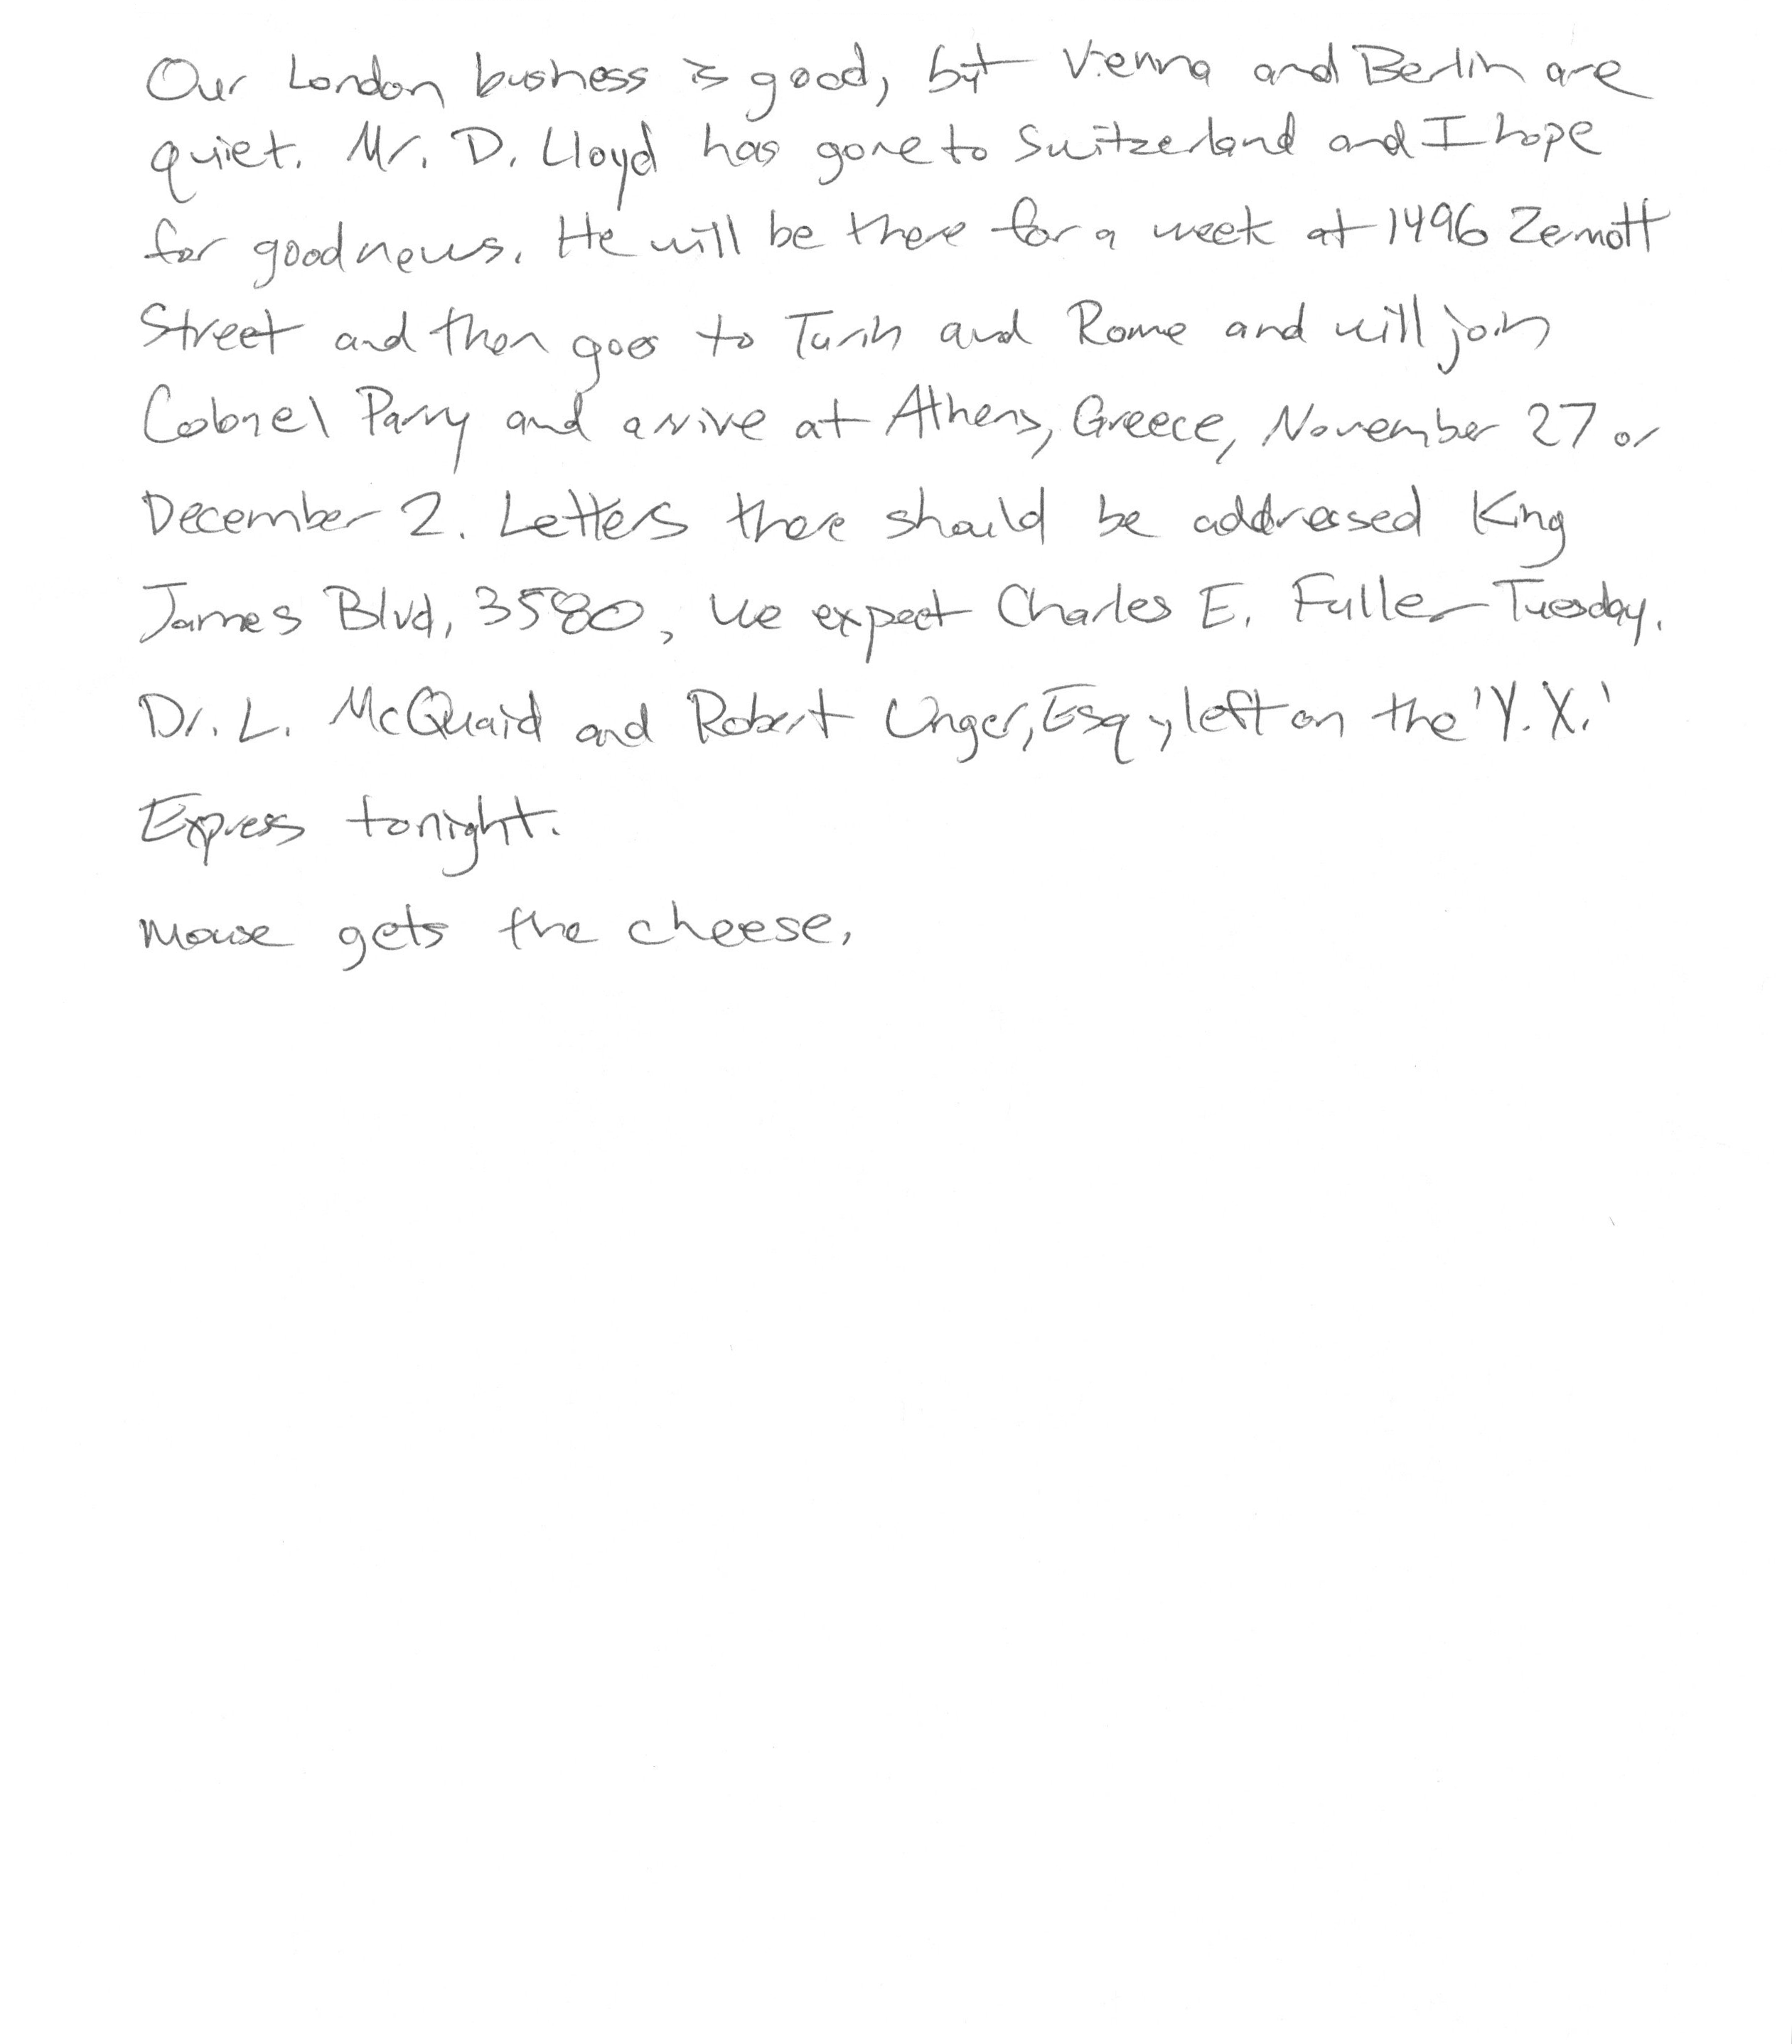 Our London business is good, but Vienna and Berlin are
quiet. Mr. D. Lloyd has gone to Switzerland and I hope
for good news. He will be there for a week at 1496 Zermott
Street and then goes to Turin and Rome and will join
Colonel Parry and arrive at Athens, Greece, November 27 or
December 2. Letters there should be addressed King
James Blvd, 3580, We expect Charles E. Fuller Tuesday.
Dr. L. McQuaid and Robert Unger, Esq, left on the 'Y.X.'
Express tonight.
Mouse gets the cheese,